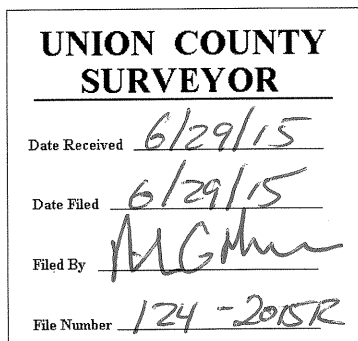 UNION COUNTY
SURVEYOR
Date Received 6/29/15
Date Filed 6/29/15
Filed By
File Number 124-2015R